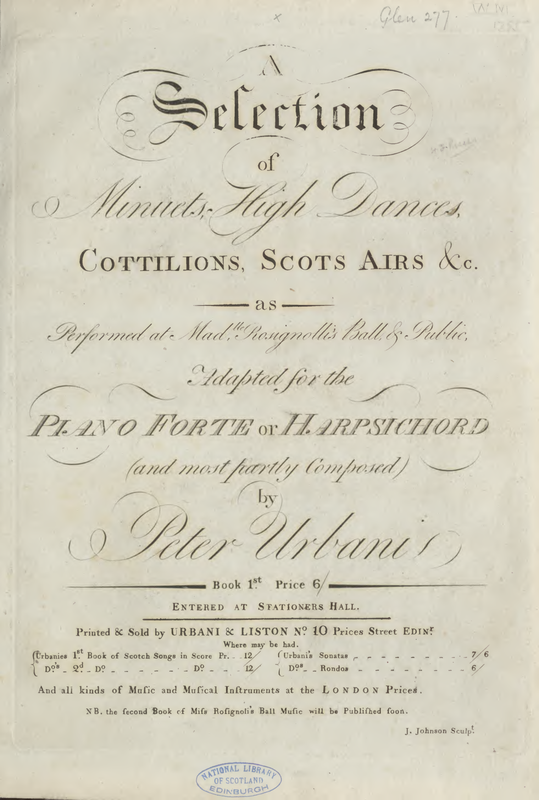 Glen 277.
A
Selection
of
Minuets, High Dances,
COTTILIONS, SCOTS AIRS &c.
as
Performed at Mad.lle Rosignolli's Ball, & Public,
Adapted for the
PIANO FORTE or HARPSICHORD
(and most partly Composed)
by
Peter Urbani
Book 1.st Price 6/
ENTERED AT STATIONERS HALL.
Printed & Sold by URBANI & LISTON No. 10 Princes Street EDINr.
Where may be had.
Urbanies 1st. Book of Scotch Songs in Score Pr. 12/ Urbani's Sonatas 7/6
Do's. 2d. Do. Do. 12/ Dos. Rondos 6/
And all kinds of Muſic and Muſical Inſtruments at the LONDON Prices.
NB. the ſecond Book of Miſs Roſignoli's Ball Muſic will be Publiſhed ſoon.
J. Johnson Sculpt.
NATIONAL LIBRARY
OF SCOTLAND
EDINBURGH